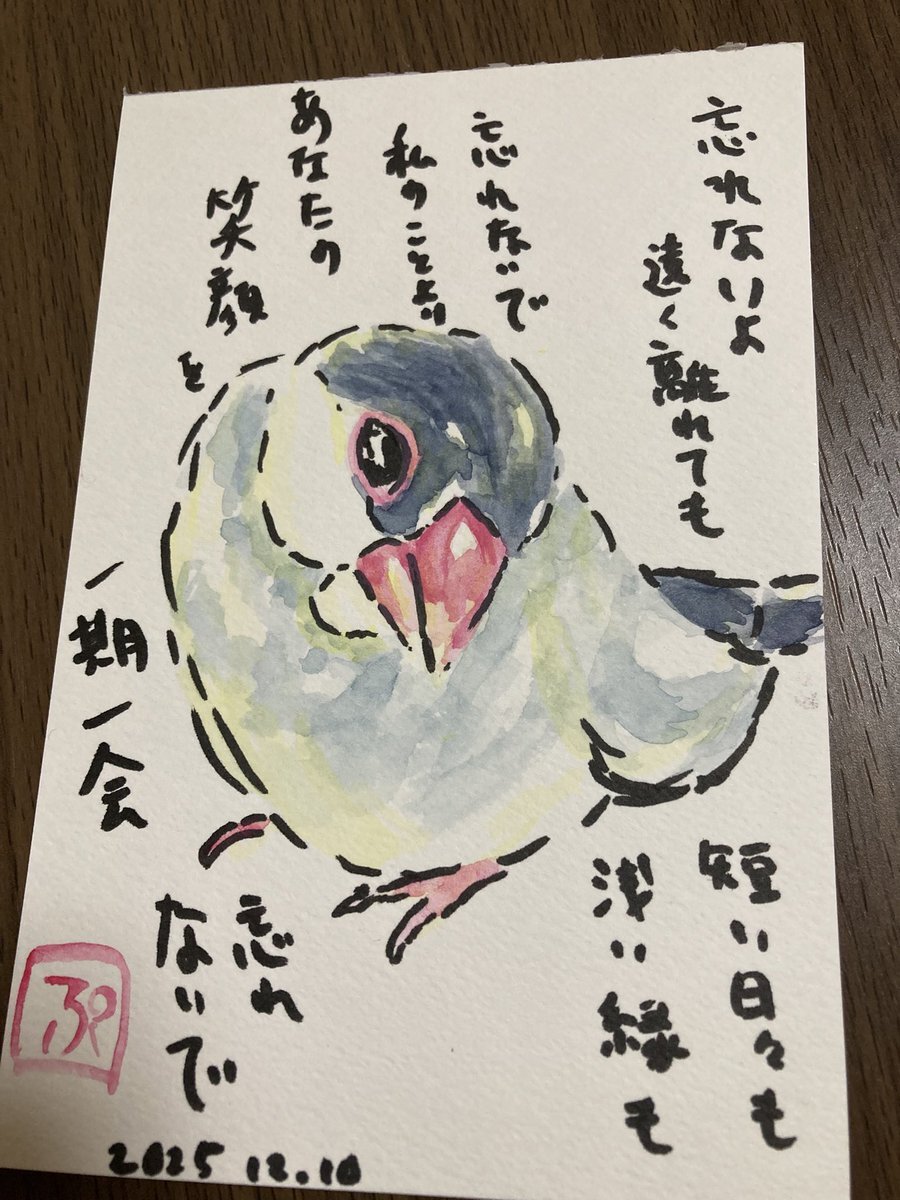 忘れないよ
遠く離れても
忘れないで
私のことより
あなたの
笑顔を
短い日々も
浅い縁も
一期一会
忘れ
ないで
ぷ
2025 12.10